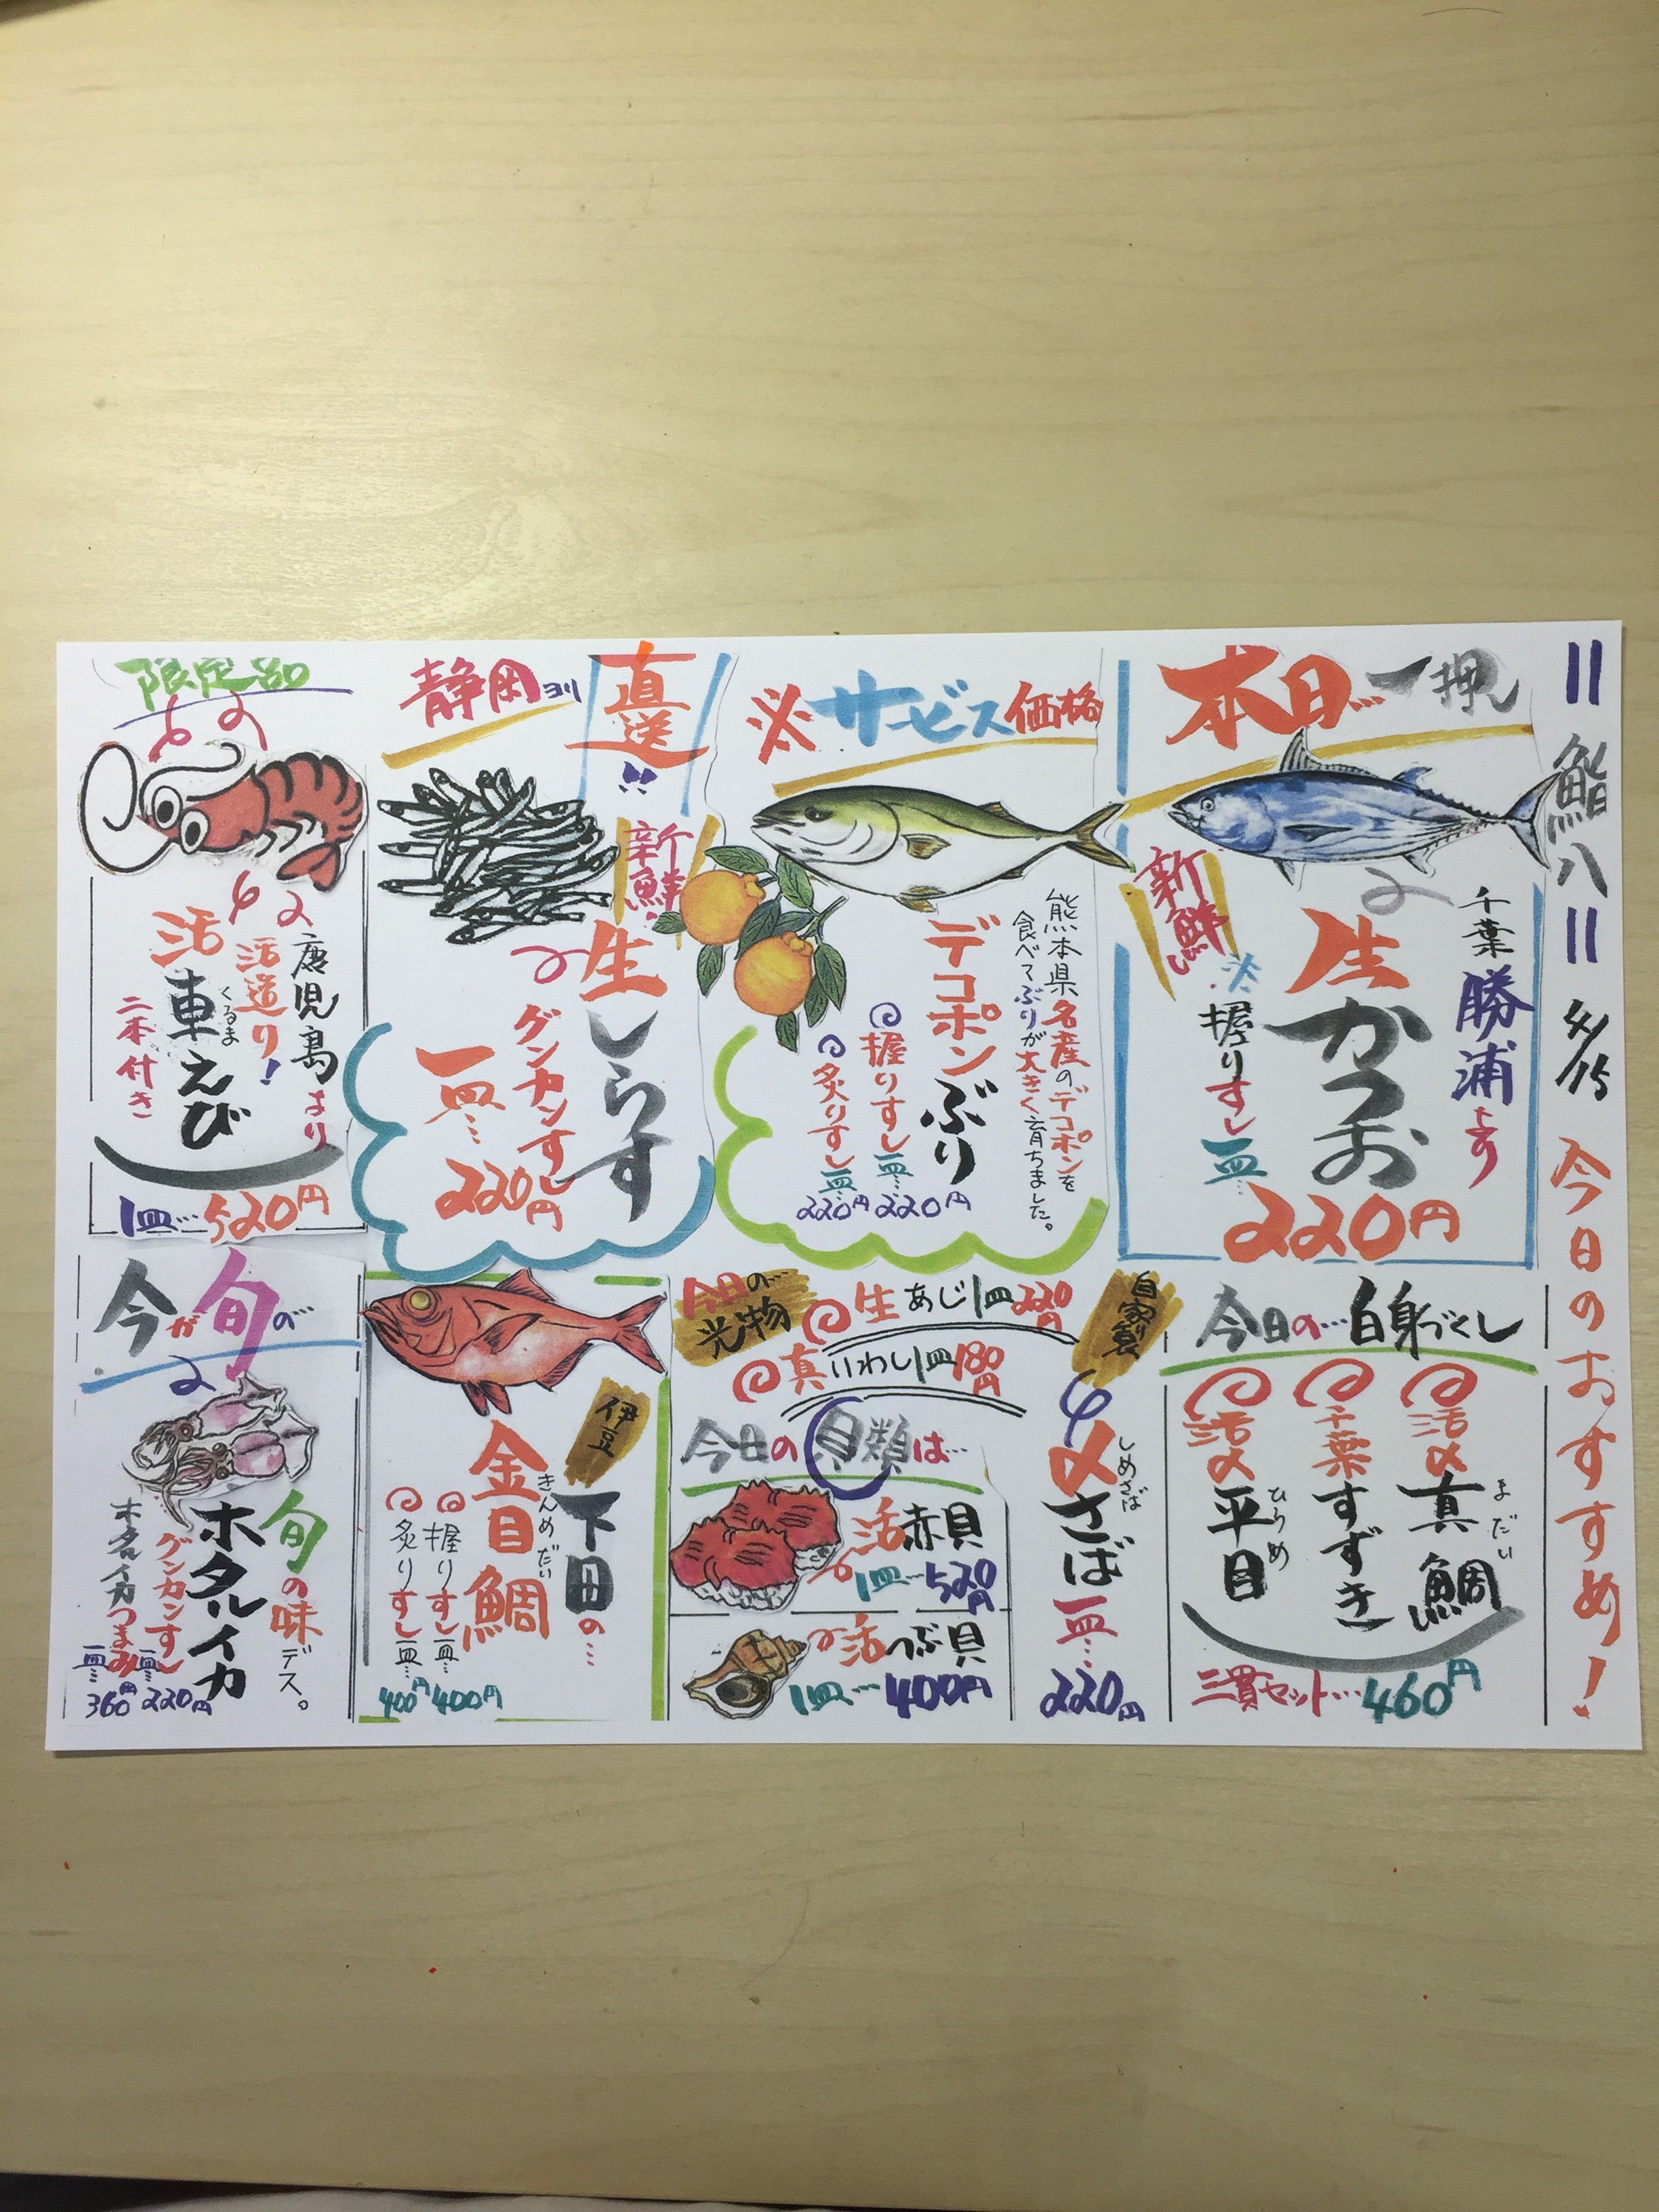 鮨八 4/15 今日のおすすめ!
本日…一押し
新鮮
千葉
勝浦より
生かつお
※握りすし一皿…
220円
※サービス価格
熊本県名産のデコポンを
食べてぶりが大きく育ちました。
デコポンぶり
握りすし一皿…220円
炙りすし一皿…220円
静岡ヨリ
直送!!
新鮮!
生しらす
グンカンすし
一皿…
220円
限定品
鹿児島より
活造り!
活車えび
くるま
二本付き
1皿…520円
今日の…白身づくし
活〆真鯛
まだい
千葉すずき
活〆平目
ひらめ
三貫セット…460円
自家製
〆さば
しめさば
一皿…
220円
今日の…光物
生あじ1皿220円
真いわし1皿180円
今日の貝類は…
活赤貝
1皿…520円
活つぶ貝
1皿…400円
伊豆
下田の…
金目鯛
きんめだい
握りすし一皿…400円
炙りすし一皿…400円
今が旬の…
旬の味デス。
ホタルイカ
グンカンすし一皿…220円
ホタルイカつまみ一皿…360円